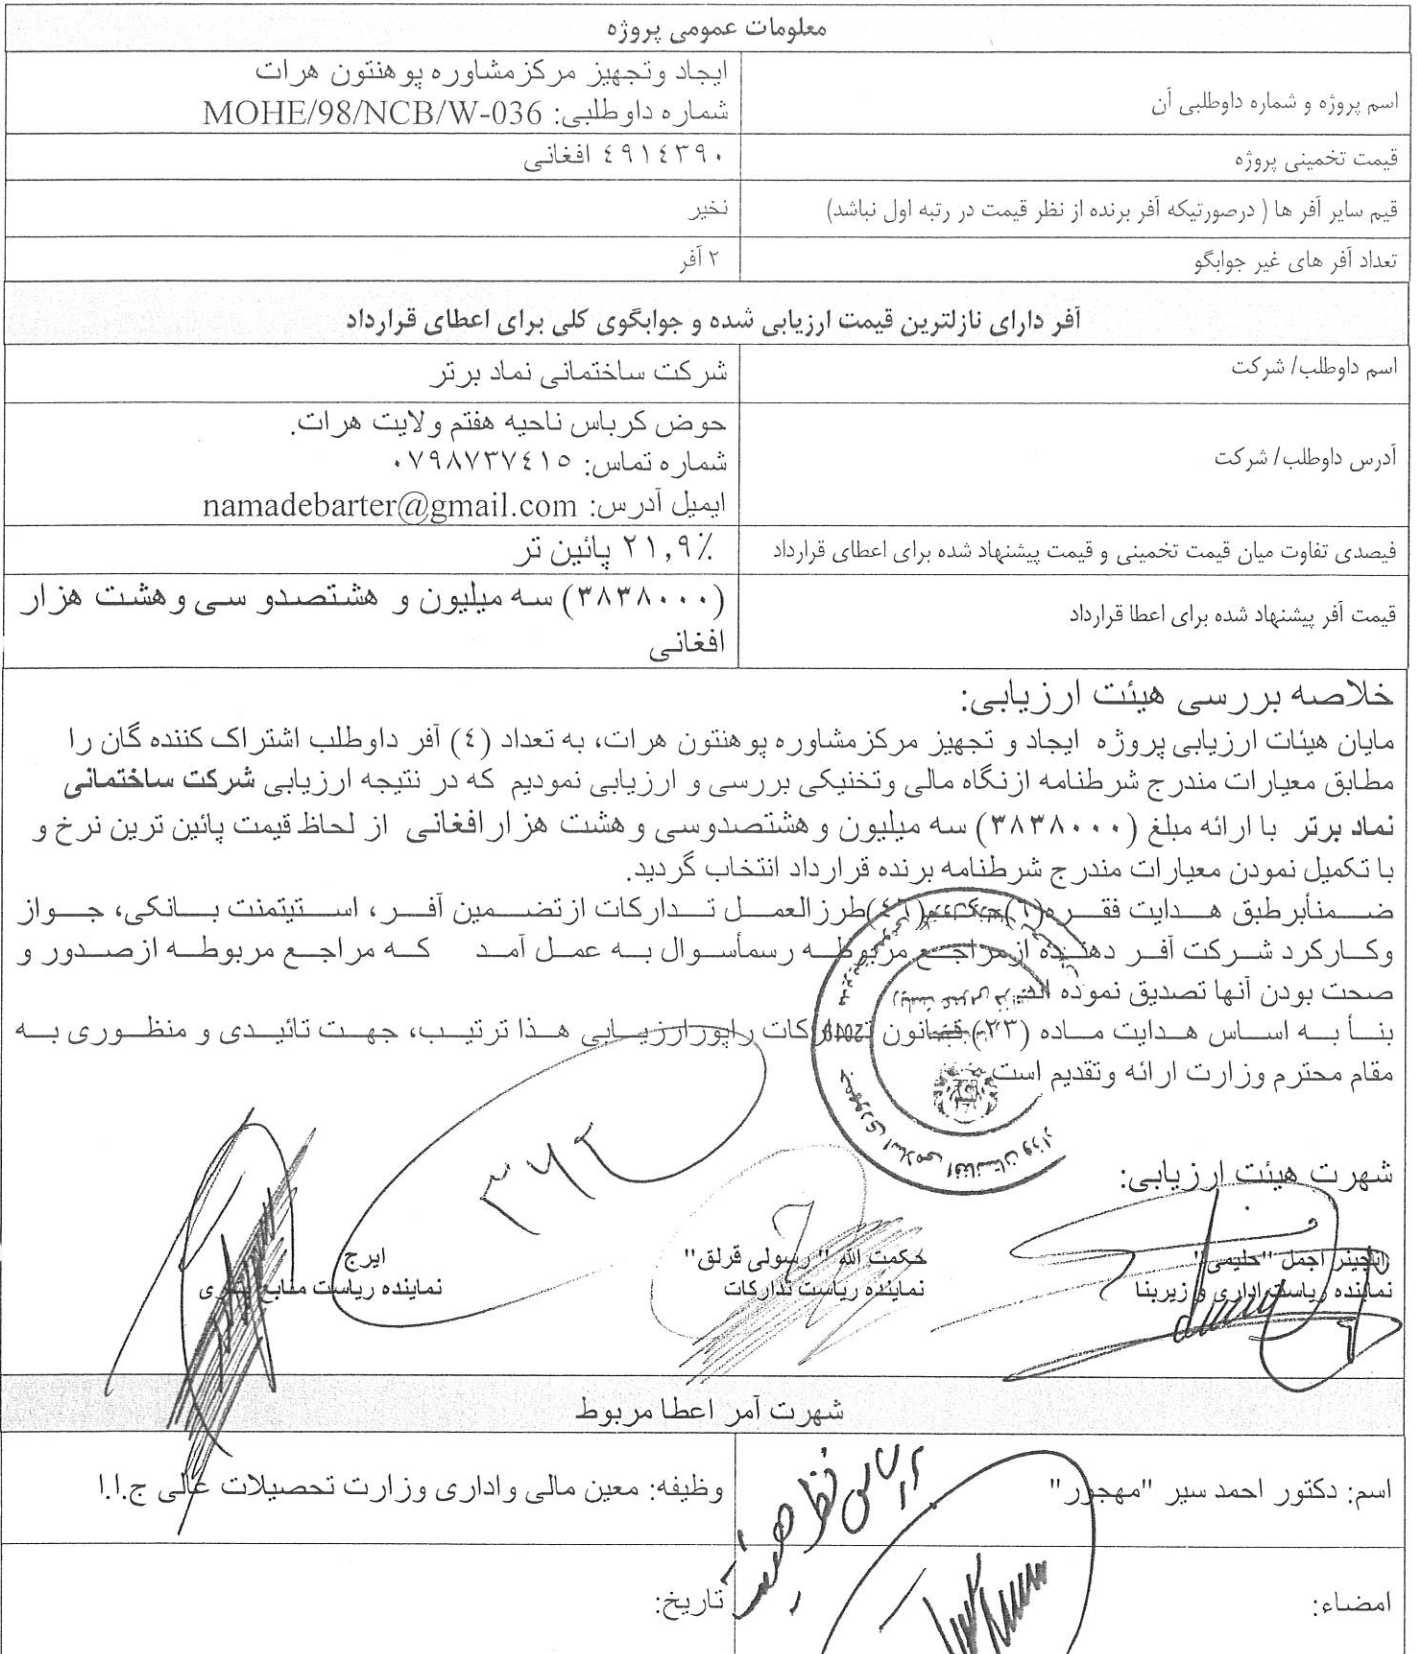 معلومات عمومی پروژه
اسم پروژه و شماره داوطلبی آن
ایجاد وتجهیز مرکزمشاوره پوهنتون هرات
شماره داوطلبی: MOHE/98/NCB/W-036
قیمت تخمینی پروژه
٤٩١٤٣٩٠ افغانی
قیم سایر آفر ها ( درصورتیکه آفر برنده از نظر قیمت در رتبه اول نباشد)
نخیر
تعداد آفر های غیر جوابگو
٢ آفر
آفر دارای نازلترین قیمت ارزیابی شده و جوابگوی کلی برای اعطای قرارداد
اسم داوطلب/ شرکت
شرکت ساختمانی نماد برتر
آدرس داوطلب/ شرکت
حوض کرباس ناحیه هفتم ولایت هرات.
شماره تماس: ٠٧٩٨٧٣٧٤١٥
ایمیل آدرس: namadebarter@gmail.com
فیصدی تفاوت میان قیمت تخمینی و قیمت پیشنهاد شده برای اعطای قرارداد
٢١,٩٪ پائین تر
قیمت آفر پیشنهاد شده برای اعطا قرارداد
(٣٨٣٨٠٠٠) سه میلیون و هشتصدو سی وهشت هزار
افغانی
خلاصه بررسی هیئت ارزیابی:
مایان هیئات ارزیابی پروژه ایجاد و تجهیز مرکزمشاوره پوهنتون هرات، به تعداد (٤) آفر داوطلب اشتراک کننده گان را
مطابق معیارات مندرج شرطنامه ازنگاه مالی وتخنیکی بررسی و ارزیابی نمودیم که در نتیجه ارزیابی شرکت ساختمانی
نماد برتر با ارائه مبلغ (٣٨٣٨٠٠٠) سه میلیون وهشتصدوسی وهشت هزارافغانی از لحاظ قیمت پائین ترین نرخ و
با تکمیل نمودن معیارات مندرج شرطنامه برنده قرارداد انتخاب گردید.
ضمنأبرطبق هدایت فقره طرزالعمل تدارکات ازتضمین آفر، استیتمنت بانکی، جواز
وکارکرد شرکت آفر دهنده ازمراجع مربوطه رسمأسوال به عمل آمد که مراجع مربوطه ازصدور و
صحت بودن آنها تصدیق نموده اند.
بنأ به اساس هدایت ماده (٢٣) قانون تدارکات راپورارزیابی هذا ترتیب، جهت تائیدی و منظوری به
مقام محترم وزارت ارائه وتقدیم است.
جمهوری اسلامی افغانستان
2019
٣٦٢
شهرت هیئت ارزیابی:
انجینر اجمل "حلیمی"
نماینده ریاست اداری و زیربنا
حکمت الله "رسولی قرلق"
نماینده ریاست تدارکات
ایرج
نماینده ریاست منابع بشری
شهرت آمر اعطا مربوط
اسم: دکتور احمد سیر "مهجور"
وظیفه: معین مالی واداری وزارت تحصیلات عالی ج.ا.ا
امضاء:
تاریخ: